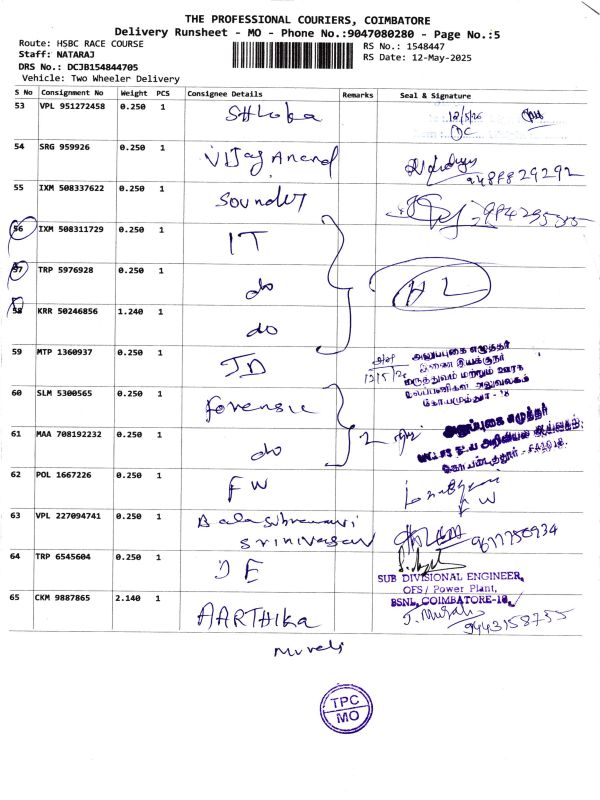 THE PROFESSIONAL COURIERS, COIMBATORE
Delivery Runsheet - MO - Phone No.:9047080280 - Page No.:5
Route: HSBC RACE COURSE
RS No.: 1548447
Staff: NATARAJ
RS Date: 12-May-2025
DRS No.: DCJB154844705
Vehicle: Two Wheeler Delivery
S No Consignment No Weight PCS Consignee Details Remarks Seal & Signature
53 VPL 951272458 0.250 1 Shloka
54 SRG 959926 0.250 1 Vijay Anand 9488829292
55 IXM 508337622 0.250 1 Sounder
56 IXM 508311729 0.250 1 IT
57 TRP 5976928 0.250 1 do HL
58 KRR 50246856 1.240 1 do
59 MTP 1360937 0.250 1 JD
அலுப்புகை எழுத்தர்
இணை இயக்குநர்
மருத்துவம் மற்றும் ஊரக
கோயமுத்தூர் - 18
60 SLM 5300565 0.250 1 forensic
61 MAA 708192232 0.250 1 do 2
62 POL 1667226 0.250 1 FW
FW
63 VPL 227094741 0.250 1 Balasubramani
Srinivasan
9677750934
64 TRP 6545604 0.250 1 DE
SUB DIVISIONAL ENGINEER,
OFS / Power Plant,
BSNL, COIMBATORE-18.
65 CKM 9887865 2.140 1 AARTHIka
J. Murali
9443158755
Murali
TPC
MO